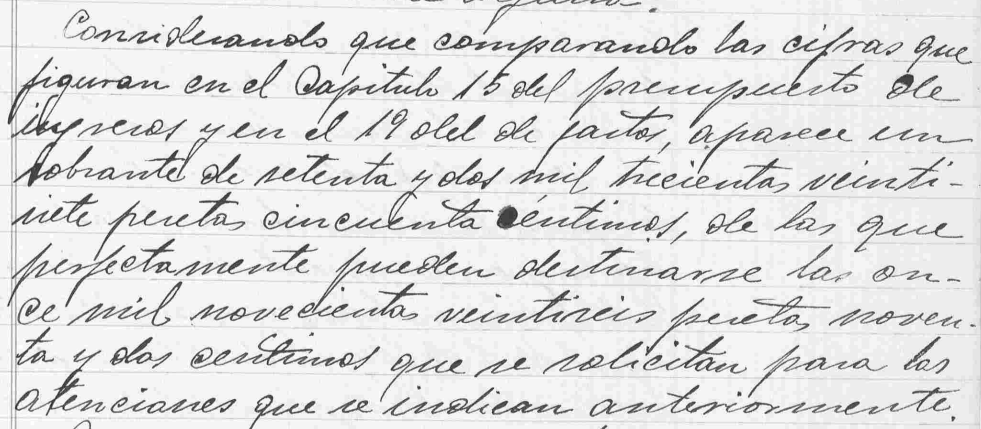 Considerando que comparando las cifras que
figuran en el Capitulo 15 del presupuesto de
ingresos y en el 19 del de gastos, aparece un
sobrante de setenta y dos mil trecientas veinti-
siete pesetas cincuenta céntimos, de las que
perfectamente pueden destinarse las on-
ce mil novecientas veintiseis pesetas noven-
ta y dos centimos que se solicitan para las
atenciones que se indican anteriormente.